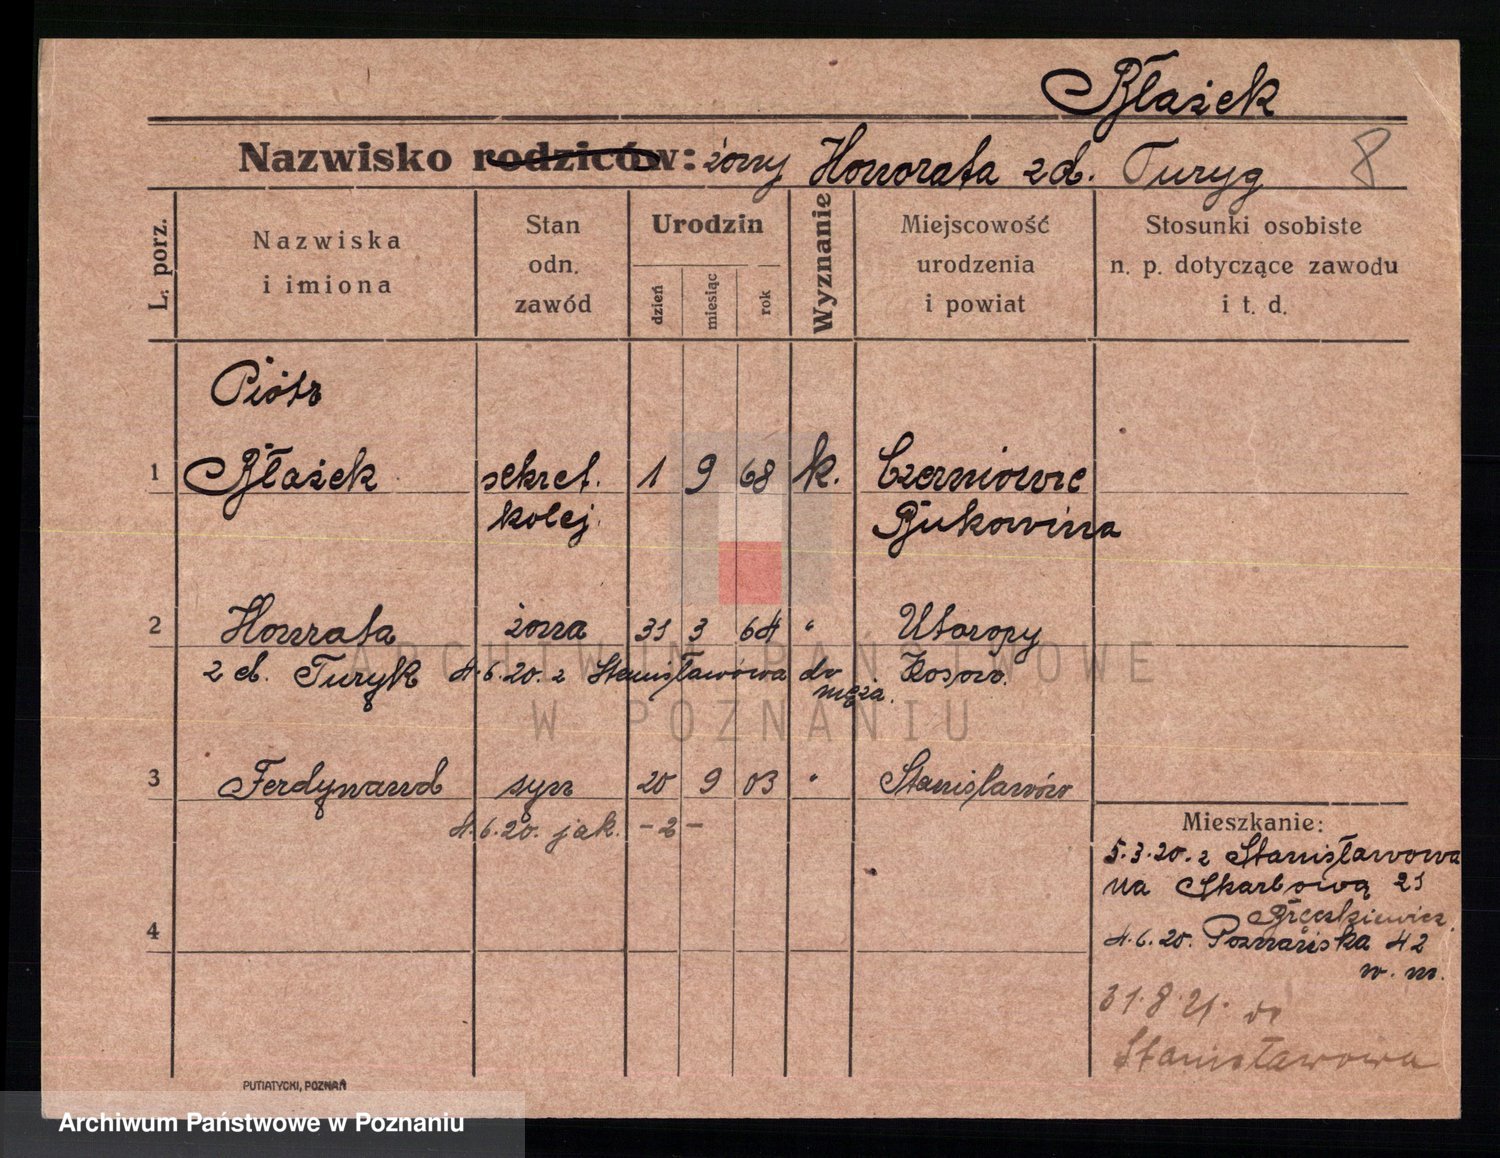 Błażek
Nazwisko rodziców: żony Honorata zd. Turyg
8
L. porz.
Nazwiska
i imiona
Stan
odn.
zawód
Urodzin
dzień
miesiąc
rok
Wyznanie
Miejscowość
urodzenia
i powiat
Stosunki osobiste
n. p. dotyczące zawodu
i t. d.
Piotr
1 Błażek sekret. 1 9 68 k. Czerniowce
kolej. Bukowina
2 Honrata żona 31 3 64 " Utoropy
zd. Turyk 4.6.20. z Stanisławowa do Kosow.
męża.
3 Ferdynand syn 20 9 03 " Stanisławów
4.6.20. jak. -2-
4
Mieszkanie:
5.3.20. z Stanisławowa
na Skarbową 21
4.6.20. Poznańska 42
w. m.
31.8.21. do
Stanisławowa
PUTIATYCKI, POZNAŃ
ARCHIWUM PAŃSTWOWE
W POZNANIU
Archiwum Państwowe w Poznaniu